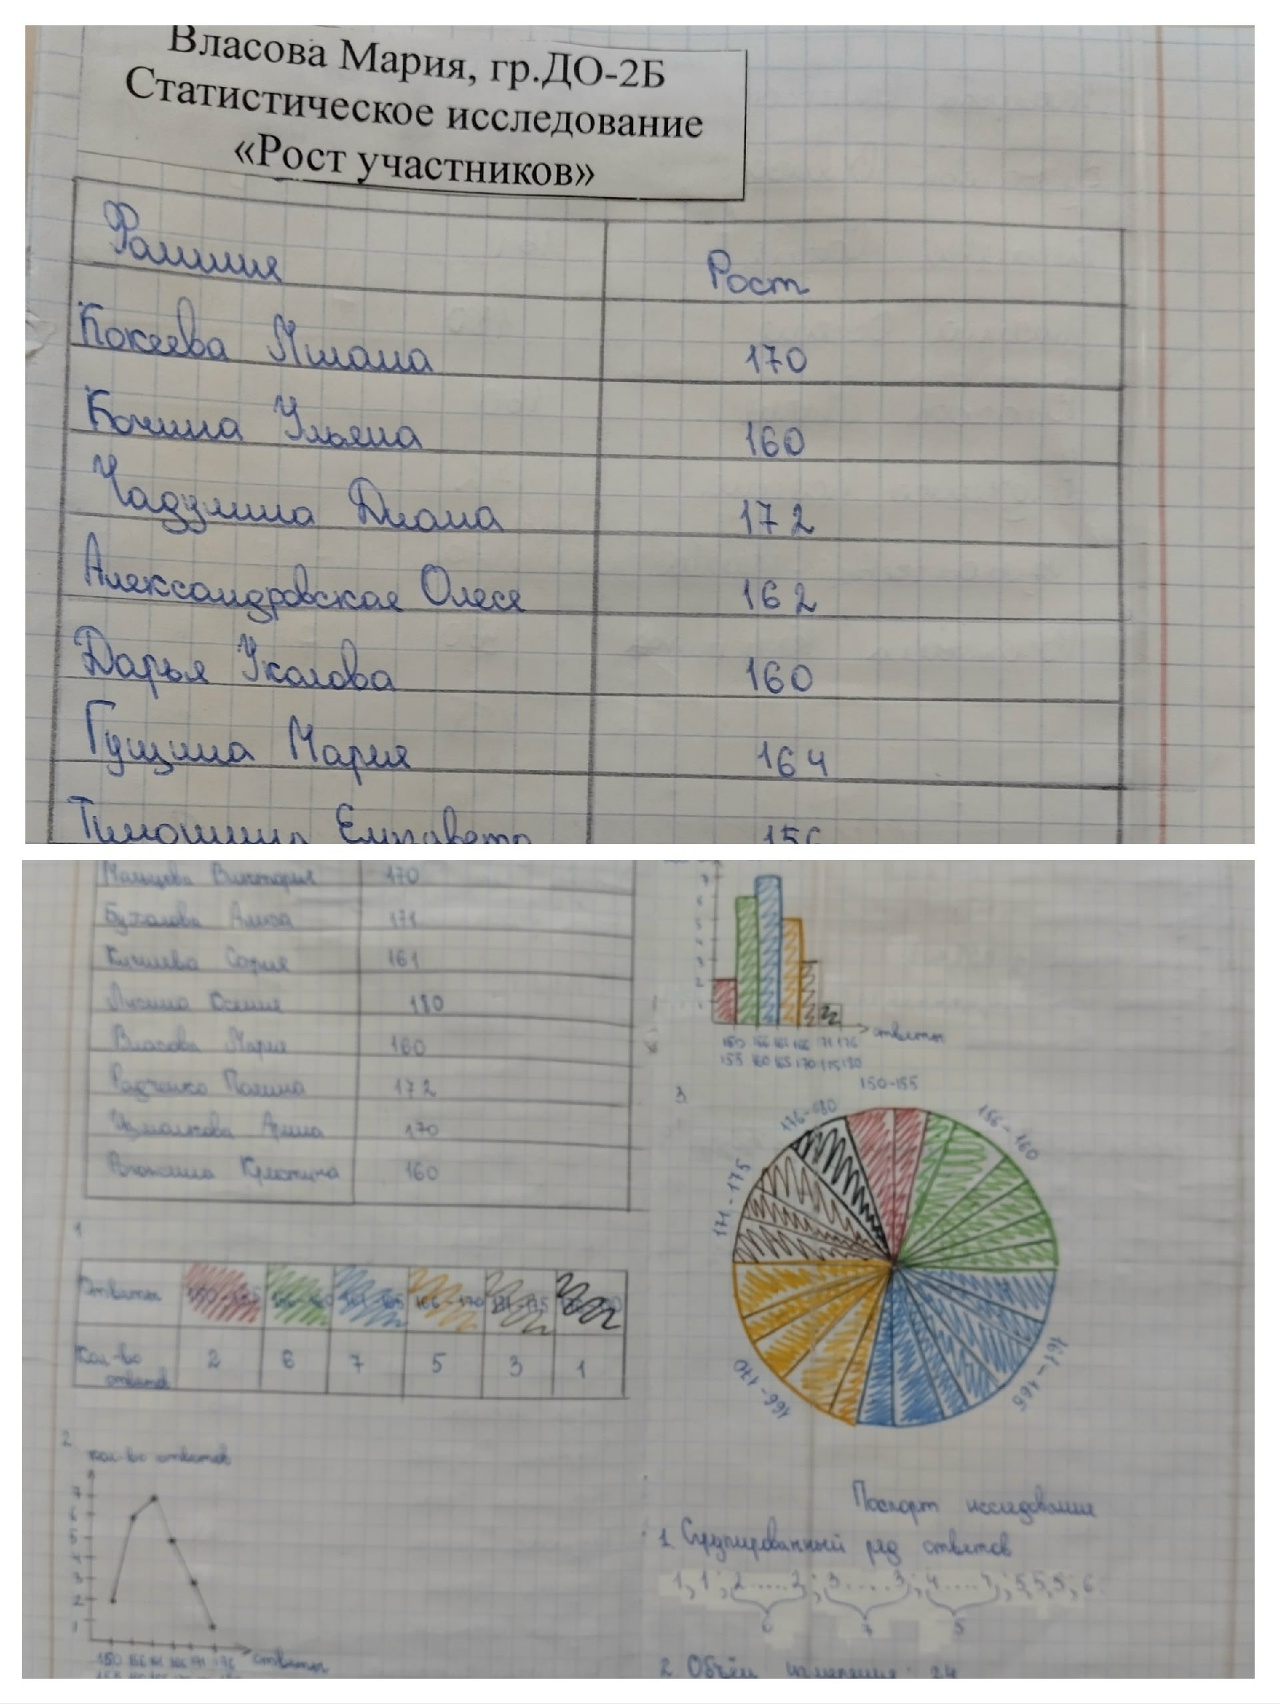 Власова Мария, гр.ДО-2Б
Статистическое исследование
«Рост участников»
Фамилия Рост
Кокеева Милана 170
Бочина Ульяна 160
Диана 172
Александровская Олеся 162
Дарья Уколова 160
Гущина Мария 164
Елизавета
Виктория 170
171
София 161
180
Власова Мария 160
Полина 172
170
Кристина 160
1
Ответы 150-155 156-160 161-165 166-170 171-175
Кол-во ответов 2 6 7 5 3 1
2
Кол-во ответов
7
6
5
4
3
2
1
ответы
150 156 161 166 171 176
7
6
5
4
3
2
1
ответы
150 156 161 166 171 176
155 160 165 170 175 180
3.
150-155
156-160
161-165
166-170
171-175
176-180
Паспорт исследования
1. Сгруппированный ряд ответов
1, 1; 2.....2; 3.....3; 4.....4; 5,5,5; 6
6 7 5
2. Объём измерения: 24